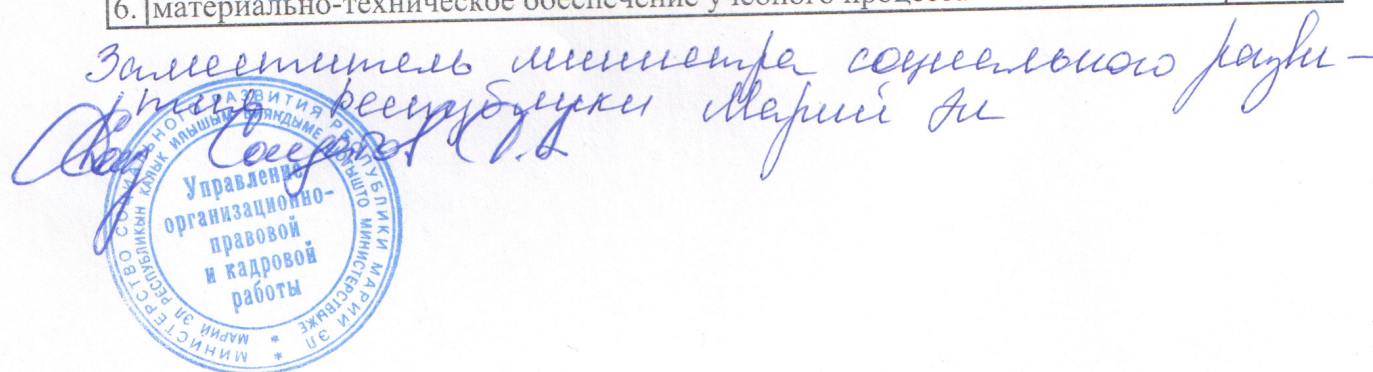 6. материально-техническое обеспечение учебного процесса
Заместитель министра социального разви-
тия республики Марий Эл
МИНИСТЕРСТВО СОЦИАЛЬНОГО РАЗВИТИЯ РЕСПУБЛИКИ МАРИЙ ЭЛ *
МАРИЙ ЭЛ РЕСПУБЛИКЫН КАЛЫК ИЛЫШЫМ МИНИСТЕРСТВЫЖЕ *
Управление
организационно-
правовой
и кадровой
работы